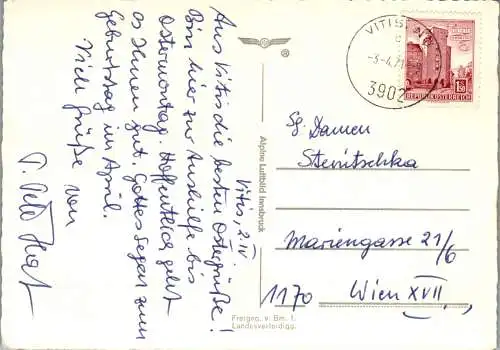 Vitis, 2. IV
Aus Vitis die besten Ostergrüße!
Bin hier zur Aushilfe bis
Ostermontag. Hoffentlich geht
es Ihnen gut. Gottes Segen zum
Geburtstag im April.
Viele Grüße von
P.
Alpine Luftbild Innsbruck
Freigeg. v. Bm. f.
Landesverteidigg.
VITIS, NÖ
c
-3.-4.71
3902
REPUBLIK ÖSTERREICH
Sg. Damen
Stenitschka
Mariengasse 21/6
1170 Wien XVII